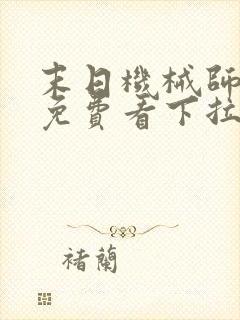 末日機械師
免費看下拉
褚蘭